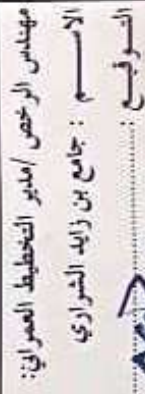 مهندس الرخص /مدير التخطيط العمراني:
الاســـــم : جامع بن زايد الشراري
التـوقيـع :